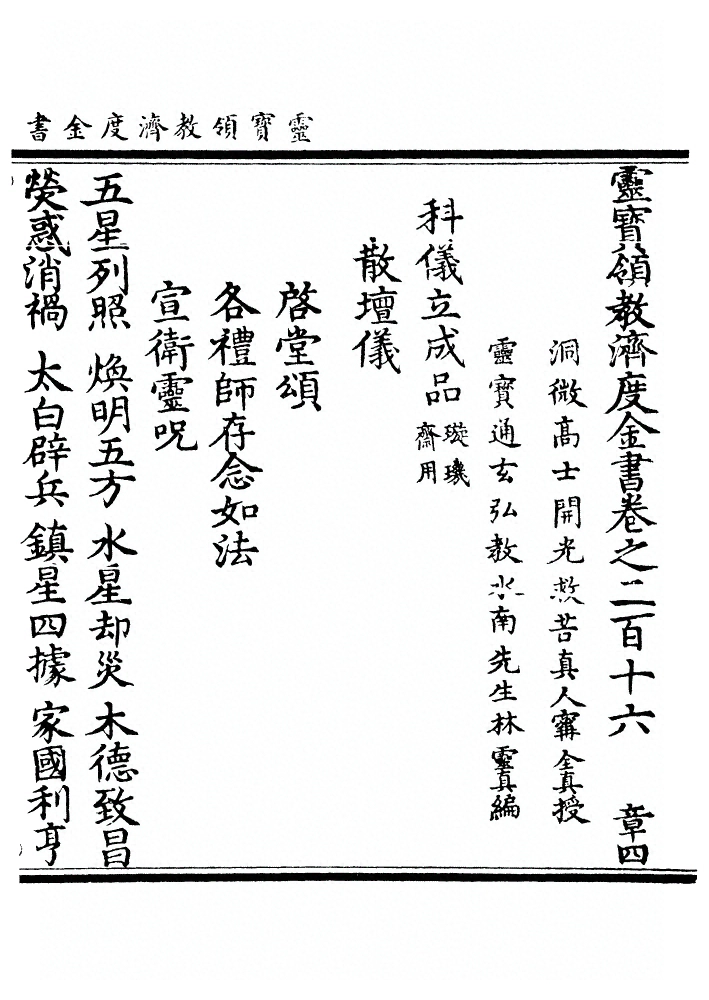 靈寶領教濟度金書
靈寶領教濟度金書卷之二百十六　章四
洞微高士開光救苦真人甯全真授
靈寶通玄弘教水南先生林靈真編
科儀立成品 璇璣齋用
散壇儀
啓堂頌
各禮師存念如法
宣衛靈呪
五星列照　煥明五方　水星却災　木德致昌
熒惑消禍　太白辟兵　鎮星四據　家國利亨